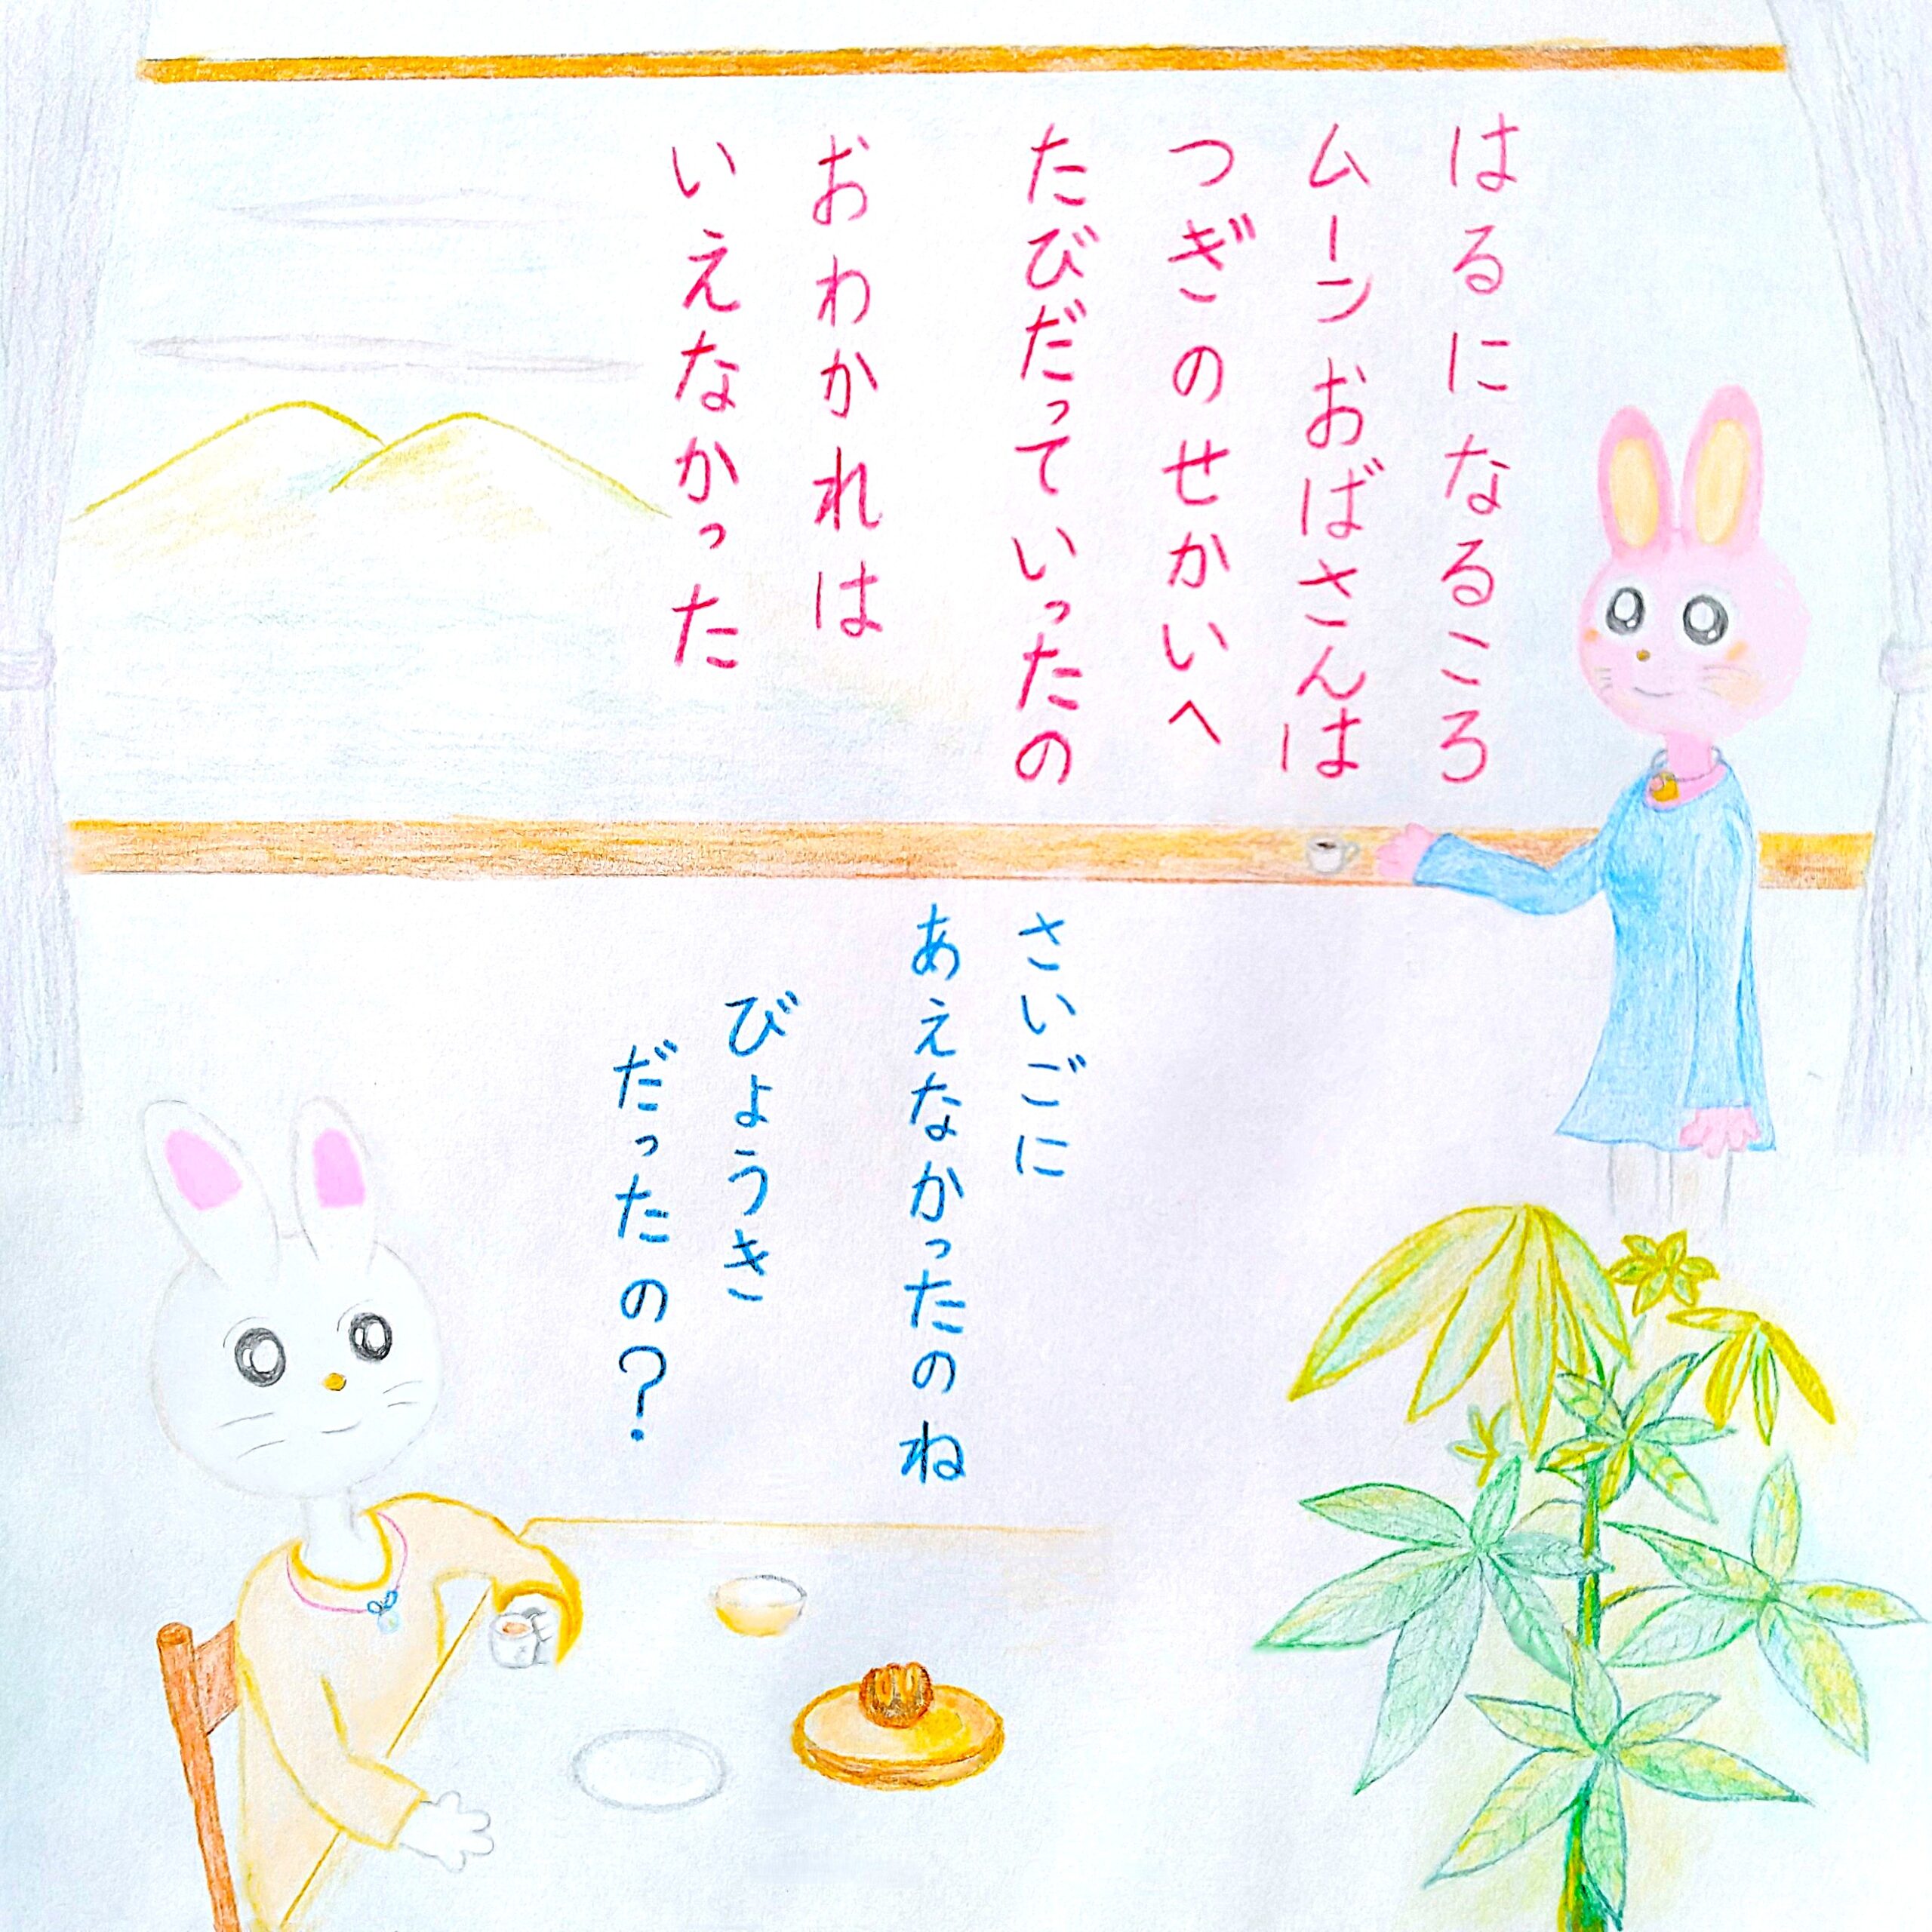 はるになるころ
ムーンおばさんは
つぎのせかいへ
たびだっていったの
おわかれは
いえなかった
さいごに
あえなかったのね
びょうき
だったの？